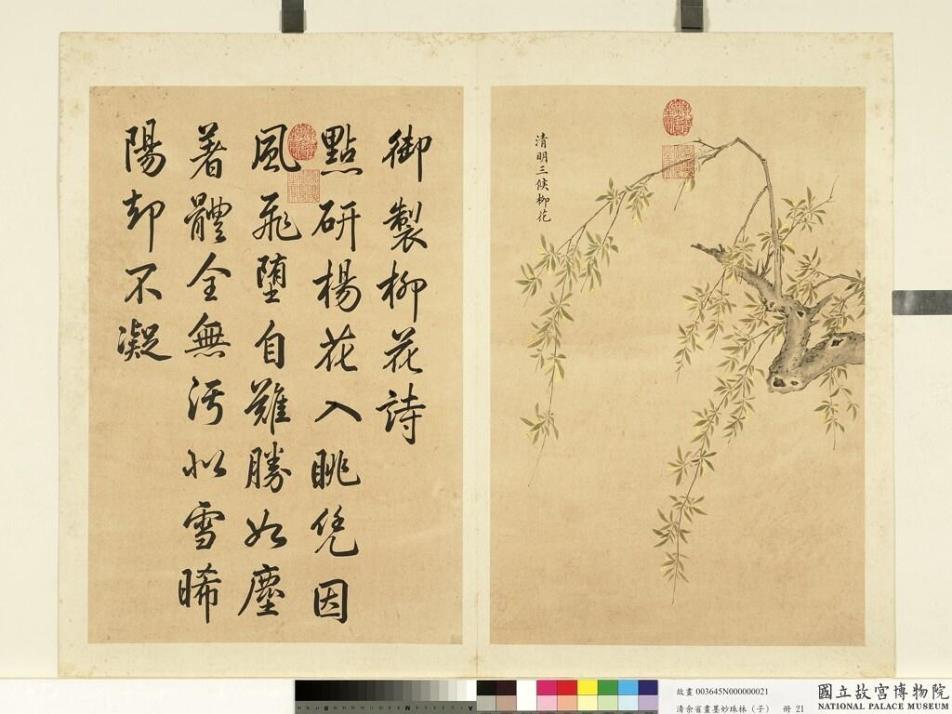 清明三候柳花
御製柳花詩
點研楊花入眺凭因
風飛墮自難勝如塵
著體全無污似雪晞
陽却不凝
故畫 003645N000000021
清余省畫墨妙珠林（子） 冊 21
國立故宮博物院
NATIONAL PALACE MUSEUM